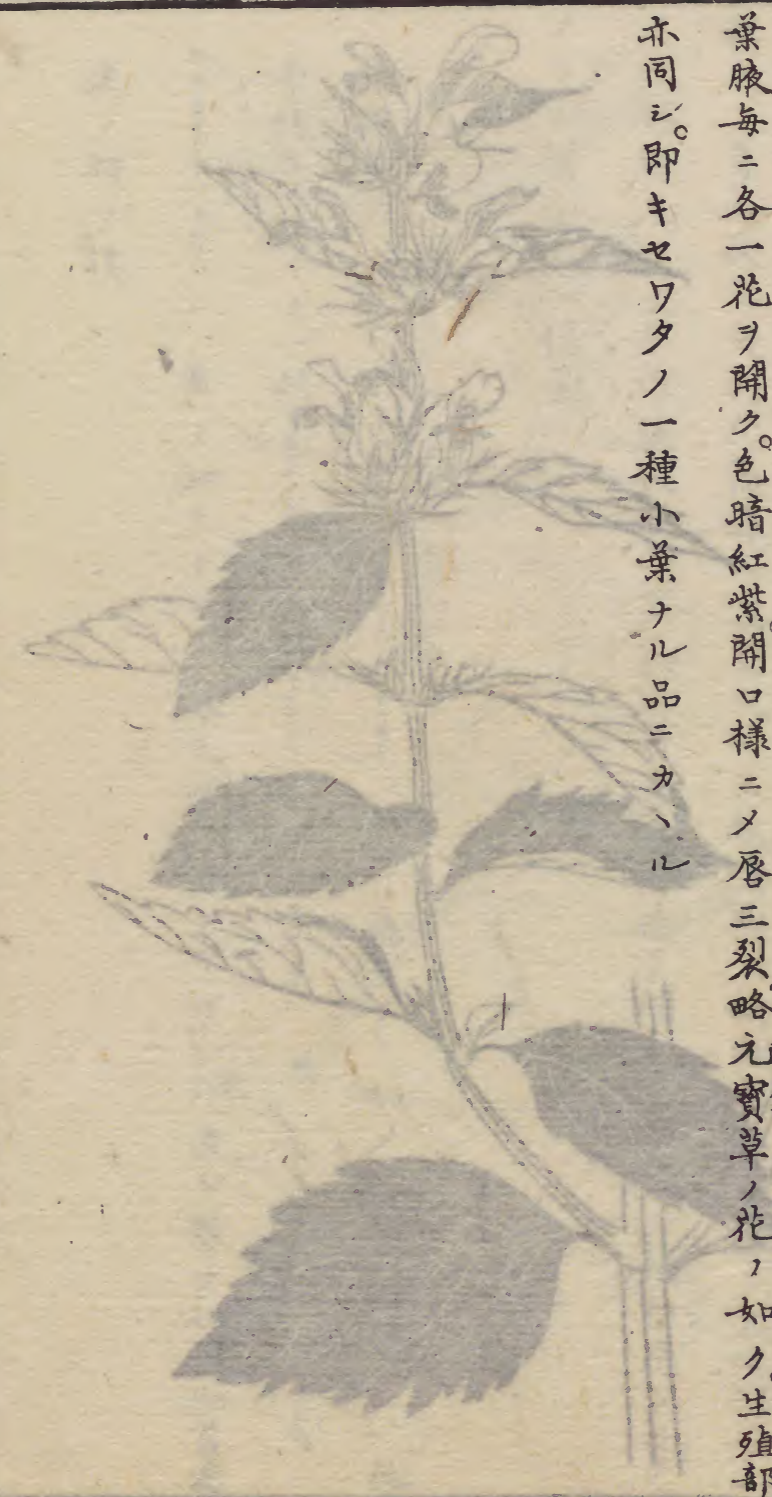 葉腋毎ニ各一花ヲ開ク。色暗紅紫。開口様ニメ唇三裂。略元寳草ノ花ノ如ク。生殖部
亦同シ。即キセワタノ一種小葉ナル品ニカヽル